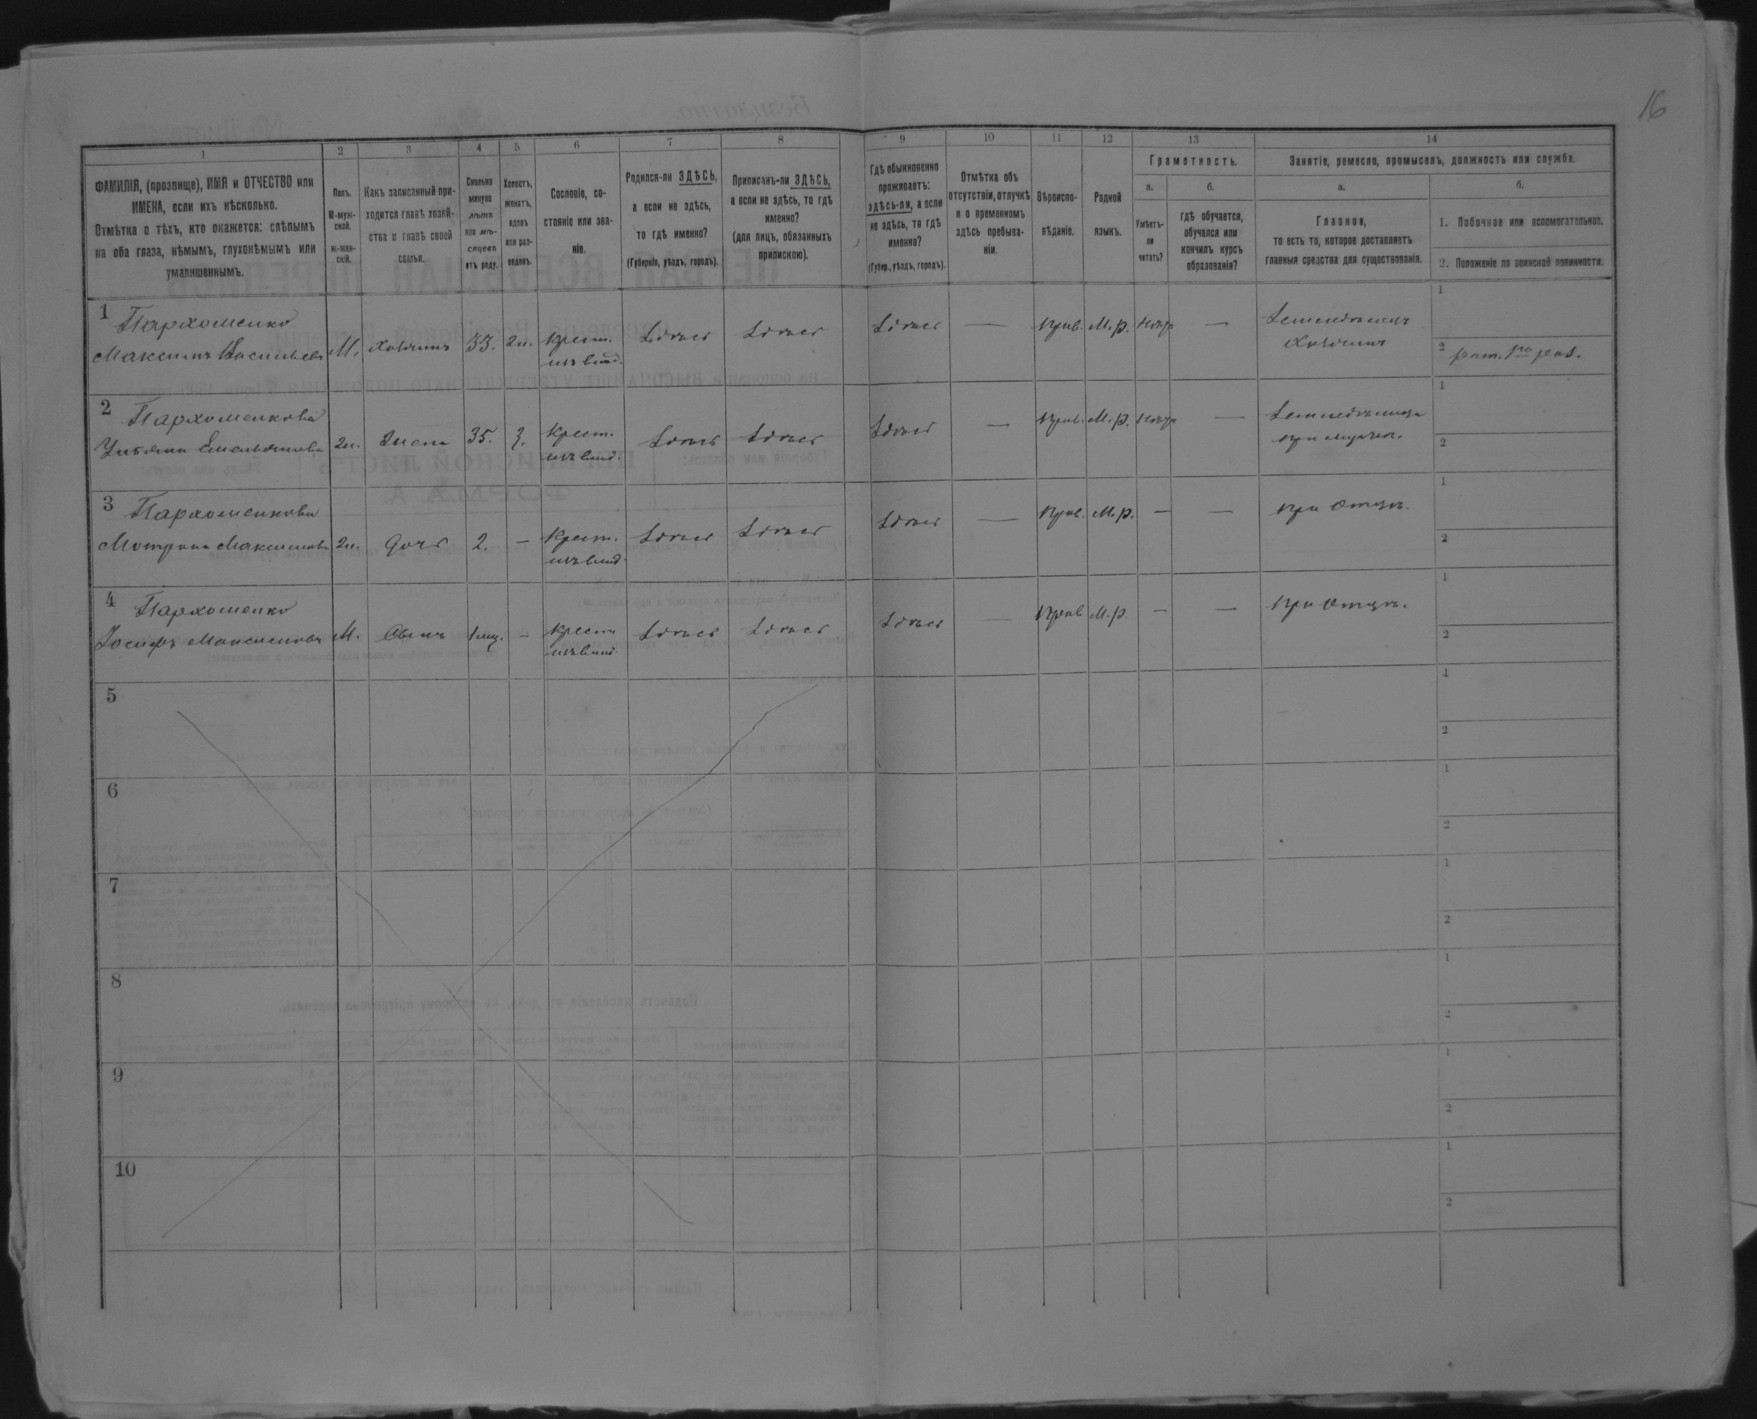 16
1 2 3 4 5 6 7 8 9 10 11 12 13 14
ФАМИЛІЯ, (прозвище), ИМЯ и ОТЧЕСТВО или
ИМЕНА, если ихъ нѣсколько.
Отмѣтка о тѣхъ, кто окажется: слѣпымъ
на оба глаза, нѣмымъ, глухонѣмымъ или
умалишеннымъ.
Полъ.
М-муж-
ской.
Ж-жен-
скій.
Какъ записанный при-
ходится главѣ хозяй-
ства и главѣ своей
семьи.
Сколько
минуло
лѣтъ
или мѣ-
сяцевъ
отъ роду.
Холостъ,
женатъ,
вдовъ
или раз-
веденъ.
Сословіе, со-
стояніе или зва-
ніе.
Родился-ли ЗДѢСЬ,
а если не здѣсь,
то гдѣ именно?
(Губернія, уѣздъ, городъ).
Приписанъ-ли ЗДѢСЬ,
а если не здѣсь, то гдѣ
именно?
(для лицъ, обязанныхъ
припискою).
Гдѣ обыкновенно
проживаетъ:
здѣсь-ли, а если
не здѣсь, то гдѣ
именно?
(Губер., уѣздъ, городъ).
Отмѣтка объ
отсутствіи, отлучкѣ
и о временномъ
здѣсь пребыва-
ніи.
Вѣроиспо-
вѣданіе.
Родной
языкъ.
Грамотность.
а.
Умѣетъ-
ли
читать?
б.
гдѣ обучается,
обучался или
кончилъ курсъ
образованія?
Занятіе, ремесло, промыселъ, должность или служба.
а.
Главное,
то есть то, которое доставляетъ
главныя средства для существованія.
б.
1. Побочное или вспомогательное.
2. Положеніе по воинской повинности.
1 Пархоменко
Максимъ Васильевъ М. хозяинъ 33. ж. крест. изъ влад. здѣсь здѣсь здѣсь — прав. М.р. —
Земледѣлецъ
хозяинъ
1
2 рат. 1го раз.
2 Пархоменкова
Ульяна Емельянова ж. жена 35. з. крест. изъ влад. здѣсь здѣсь здѣсь — прав. М.р. —
при мужѣ.
1
2
3 Пархоменкова
Мотрона Максимова ж. дочь 2. — крест. изъ влад. здѣсь здѣсь здѣсь — прав. М.р. — — при отцѣ.
1
2
4 Пархоменко
Іосифъ Максимовъ М. сынъ 1 мѣц. — крест. изъ влад. здѣсь здѣсь здѣсь — прав М.р. — — при отцѣ.
1
2
5
1
2
6
1
2
7
1
2
8
1
2
9
1
2
10
1
2